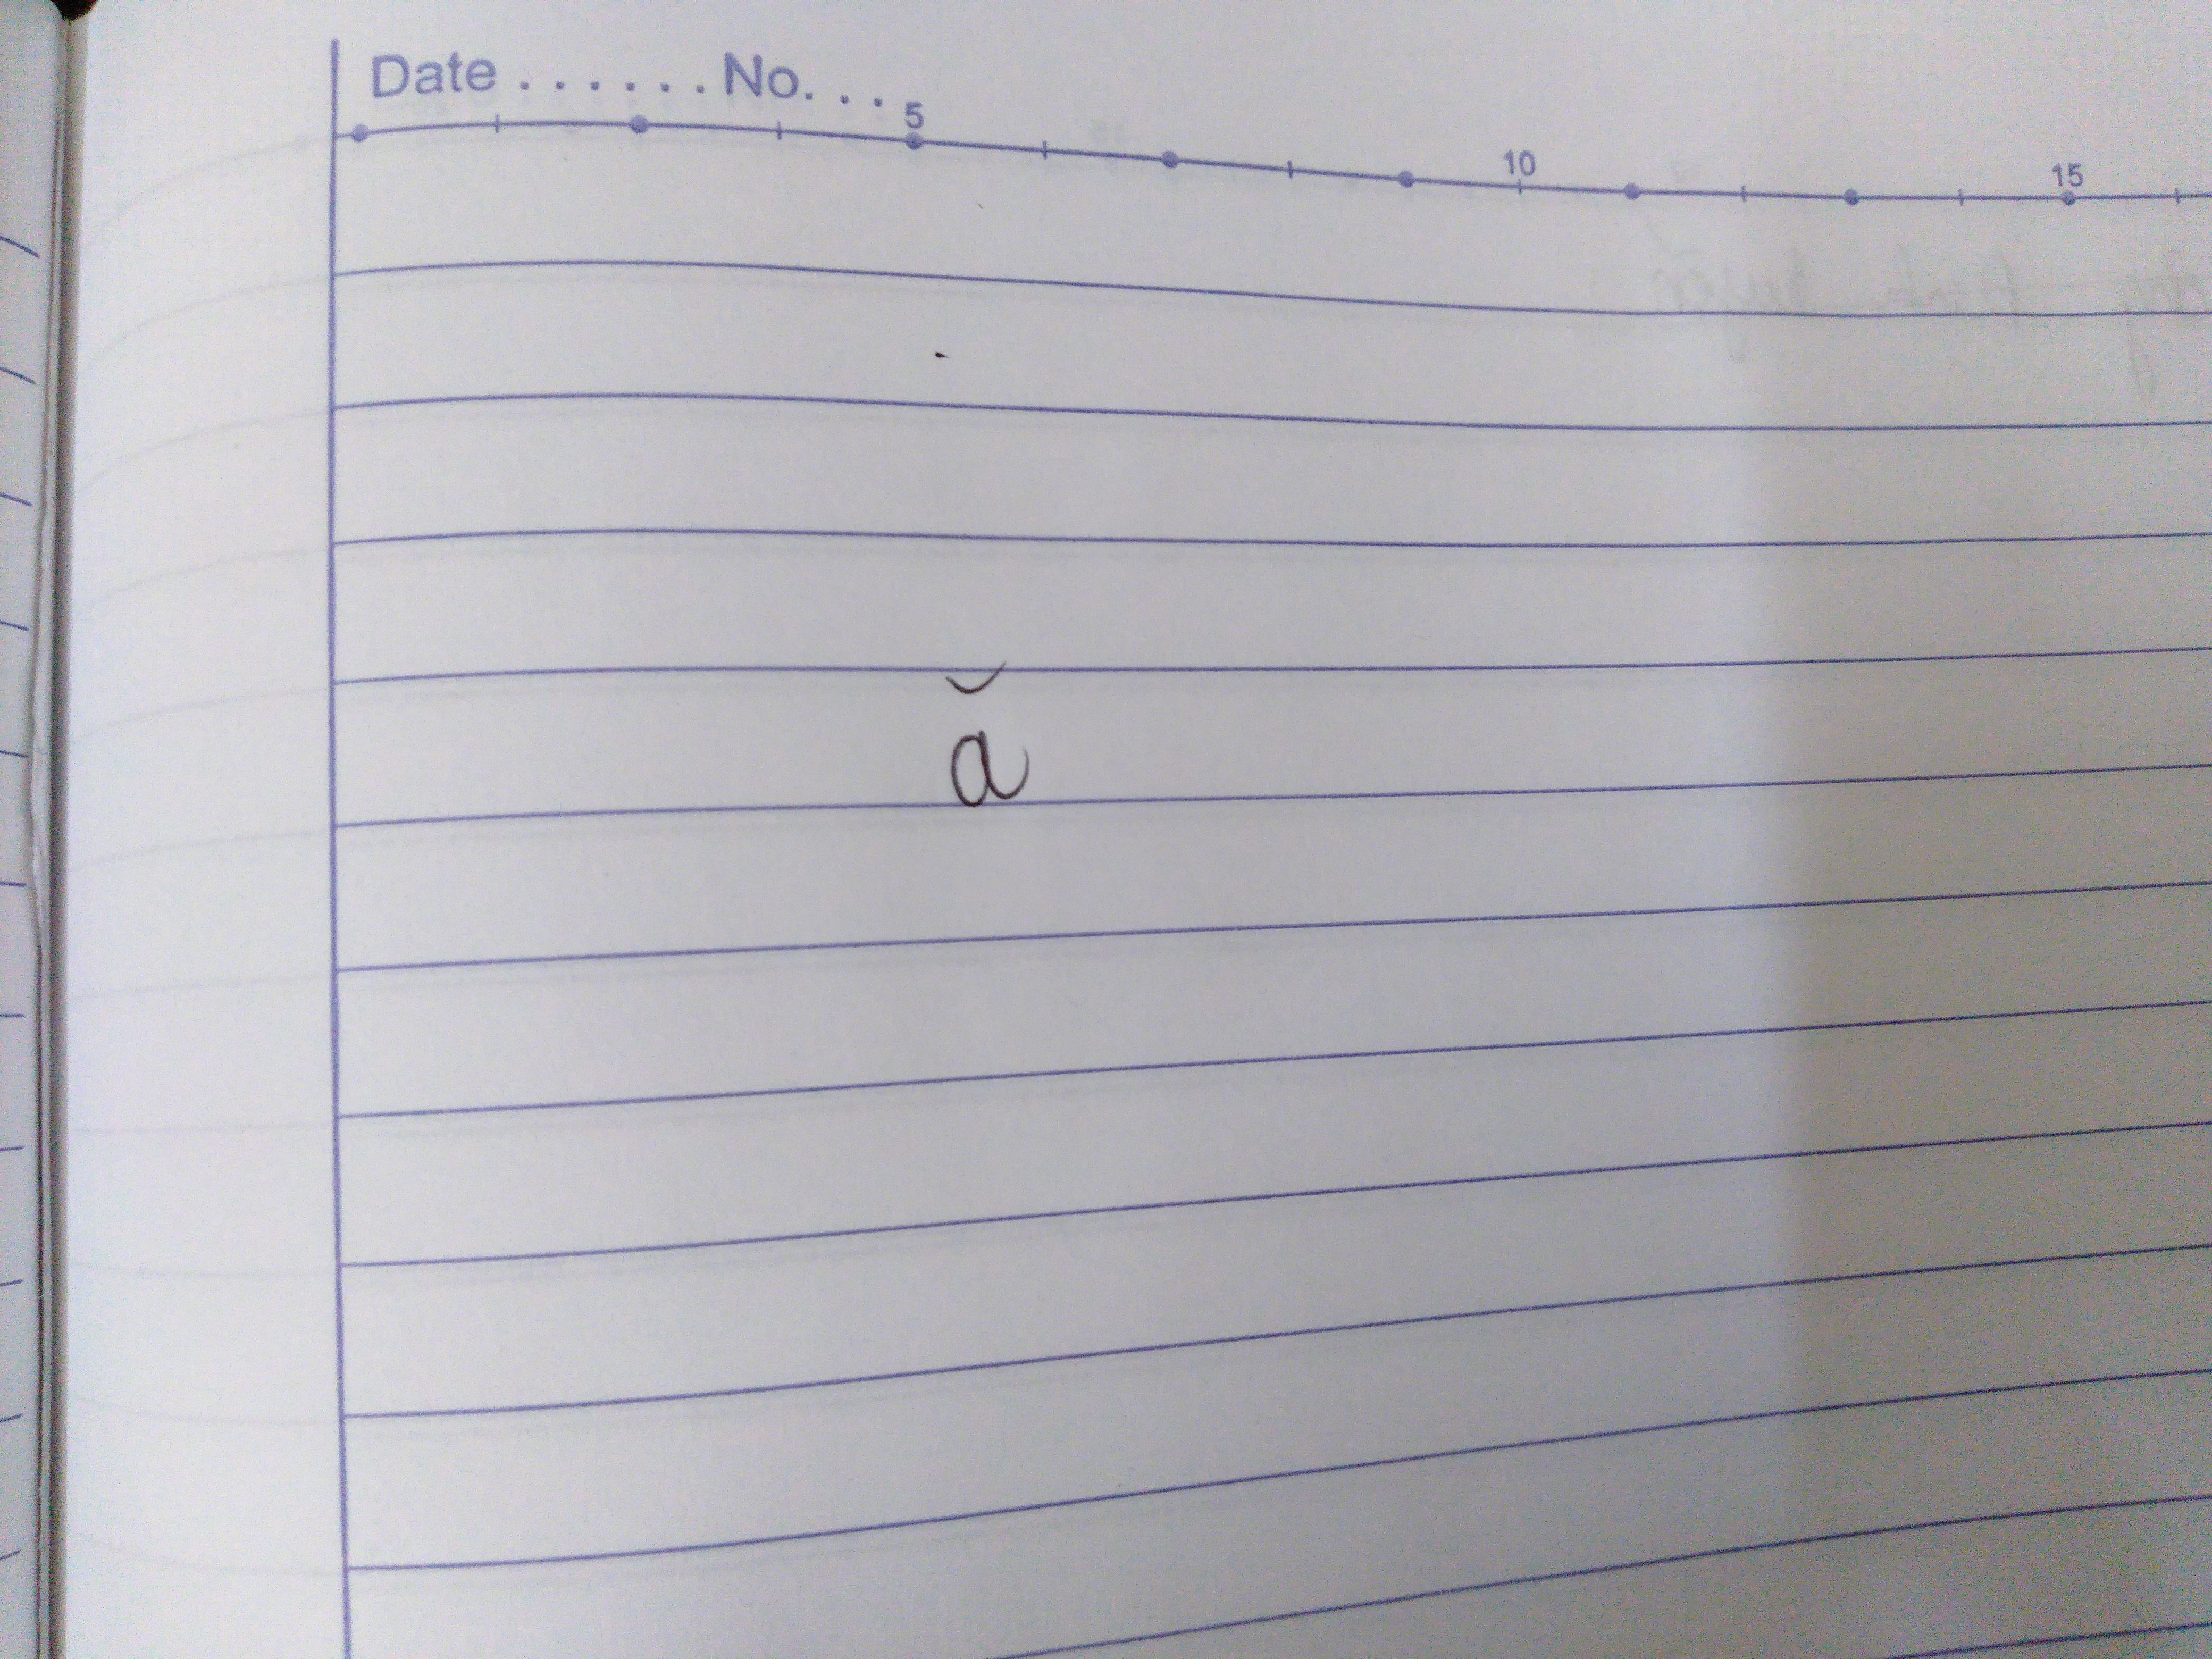 Date ...... No. ...
5 10 15
ă